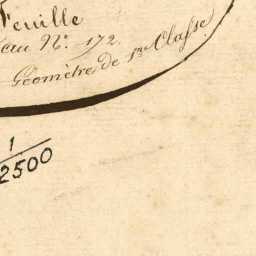 Feuille
N.º 172
Géomètre de 1re Classe.
1
2500